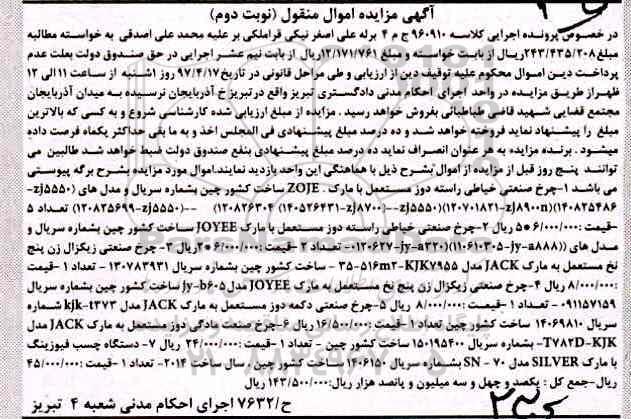 آگهی مزایده اموال منقول (نوبت دوم)
در خصوص پرونده اجرایی کلاسه ۹۶۰۹۱۰ ج م ۴ برله علی اصغر نیکی قراملکی بر علیه محمد علی اصدقی به خواسته مطالبه
مبلغ ۲۴۳/۴۳۵/۲۰۸ریال از بابت خواسته و مبلغ ۱۲/۱۷۱/۷۶۱ریال از بابت نیم عشر اجرایی در حق صندوق دولت بعلت عدم
پرداخت دین اموال محکوم علیه توقیف دین از ارزیابی و طی مراحل قانونی در تاریخ ۹۷/۴/۱۷ روز شنبه از ساعت ۱۱الی ۱۲
ظهراز طریق مزایده در واحد اجرای احکام مدنی دادگستری تبریز واقع در تبریز خ آذربایجان نرسیده به میدان آذربایجان
مجتمع قضایی شهید قاضی طباطبائی بفروش خواهد رسید . مزایده از مبلغ ارزیابی شده کارشناسی شروع و به کسی که بالاترین
مبلغ را پیشنهاد نماید فروخته خواهد شد و ده درصد مبلغ پیشنهادی فی المجلس اخذ و به ما بقی حداکثر یکماه فرصت داده
میشود . برنده مزایده به هر عنوان انصراف نماید ده درصد مبلغ پیشنهادی بنفع صندوق دولت ضبط خواهد شد طالبین می
توانند پنج روز قبل از مزایده از اموال بشرح ذیل با هماهنگی این واحد بازدید نمایند.اموال مورد مزایده بشرح برگه پیوستی
می باشد ۱-چرخ صنعتی خیاطی راسته دوز مستعمل با مارک ZOJE . ساخت کشور چین بشماره سریال و مدل های (zj۵۵۵۰-
۱۴۰۸۲۵۴۸۶)(zj۸۹۰۰n-۱۲۰۷۰۱۸۲۱)(zj۵۵۵۰--zj۸۷۰۰-۱۴۰۵۲۶۴۳۱) (۱۲۰۸۲۶۳۰۴ --(zj۵۵۵۰-۱۲۰۸۲۵۶۹۹) تعداد ۵
-قیمت :۶/۰۰۰/۰۰۰*۵ ریال ۲-چرخ صنعتی خیاطی راسته دوز مستعمل با مارک JOYEE ساخت کشور چین بشماره سریال و
مدل های ((jy-a۸۸۸-۱۱۰۶۱۰۳۰۵)(jy-a۲۲۰-۱۲۰۶۲۷- تعداد ۲ -قیمت :۶/۰۰۰/۰۰۰*۲ریال ۳-چرخ صنعتی زیکزال زن پنج
نخ مستعمل به مارک JACK مدل ۳۵-۵۱۶m۲-KJK۷۹۵۵ - ساخت کشور چین بشماره سریال ۱۳۰۷۸۳۹۳۱ - تعداد ۱ -قیمت
:۸/۰۰۰/۰۰۰ ریال ۴-چرخ صنعتی زیکزال زن پنج نخ مستعمل به مارک JOYEE مدل jy-b۶۰۵ ساخت کشور چین بشماره سریال
۰۹۱۱۵۷۱۵۹ - تعداد ۱ -قیمت: ۸/۰۰۰/۰۰۰ ریال ۵-چرخ صنعتی دکمه دوز مستعمل به مارک JACK مدل kjk-t۳۷۳ شماره
سریال ۱۴۰۶۹۸۱۰ ساخت کشور چین تعداد ۱ -قیمت :۱۶/۵۰۰/۰۰۰ریال ۶-چرخ صنعت مادگی دوز مستعمل به مارک JACK مدل
T۷۸۲D-KJK- بشماره سریال ۱۵۰۱۹۵۴۰۰ ساخت کشور چین - تعداد ۱ -قیمت :۲۴/۰۰۰/۰۰۰ ریال ۷- دستگاه چسب فیوزینگ
با مارک SILVER مدل ۷۰ - SN بشماره سریال ۱۴۰۶۱۵۰ ساخت کشور چین - سال ساخت ۲۰۱۴- تعداد ۱ -قیمت :۴۵/۰۰۰/۰۰۰
ریال-جمع کل : یکصد و چهل و سه میلیون و پانصد هزار ریال:۱۴۳/۵۰۰/۰۰۰ ریال
ح/۷۶۳۲ اجرای احکام مدنی شعبه ۴ تبریز